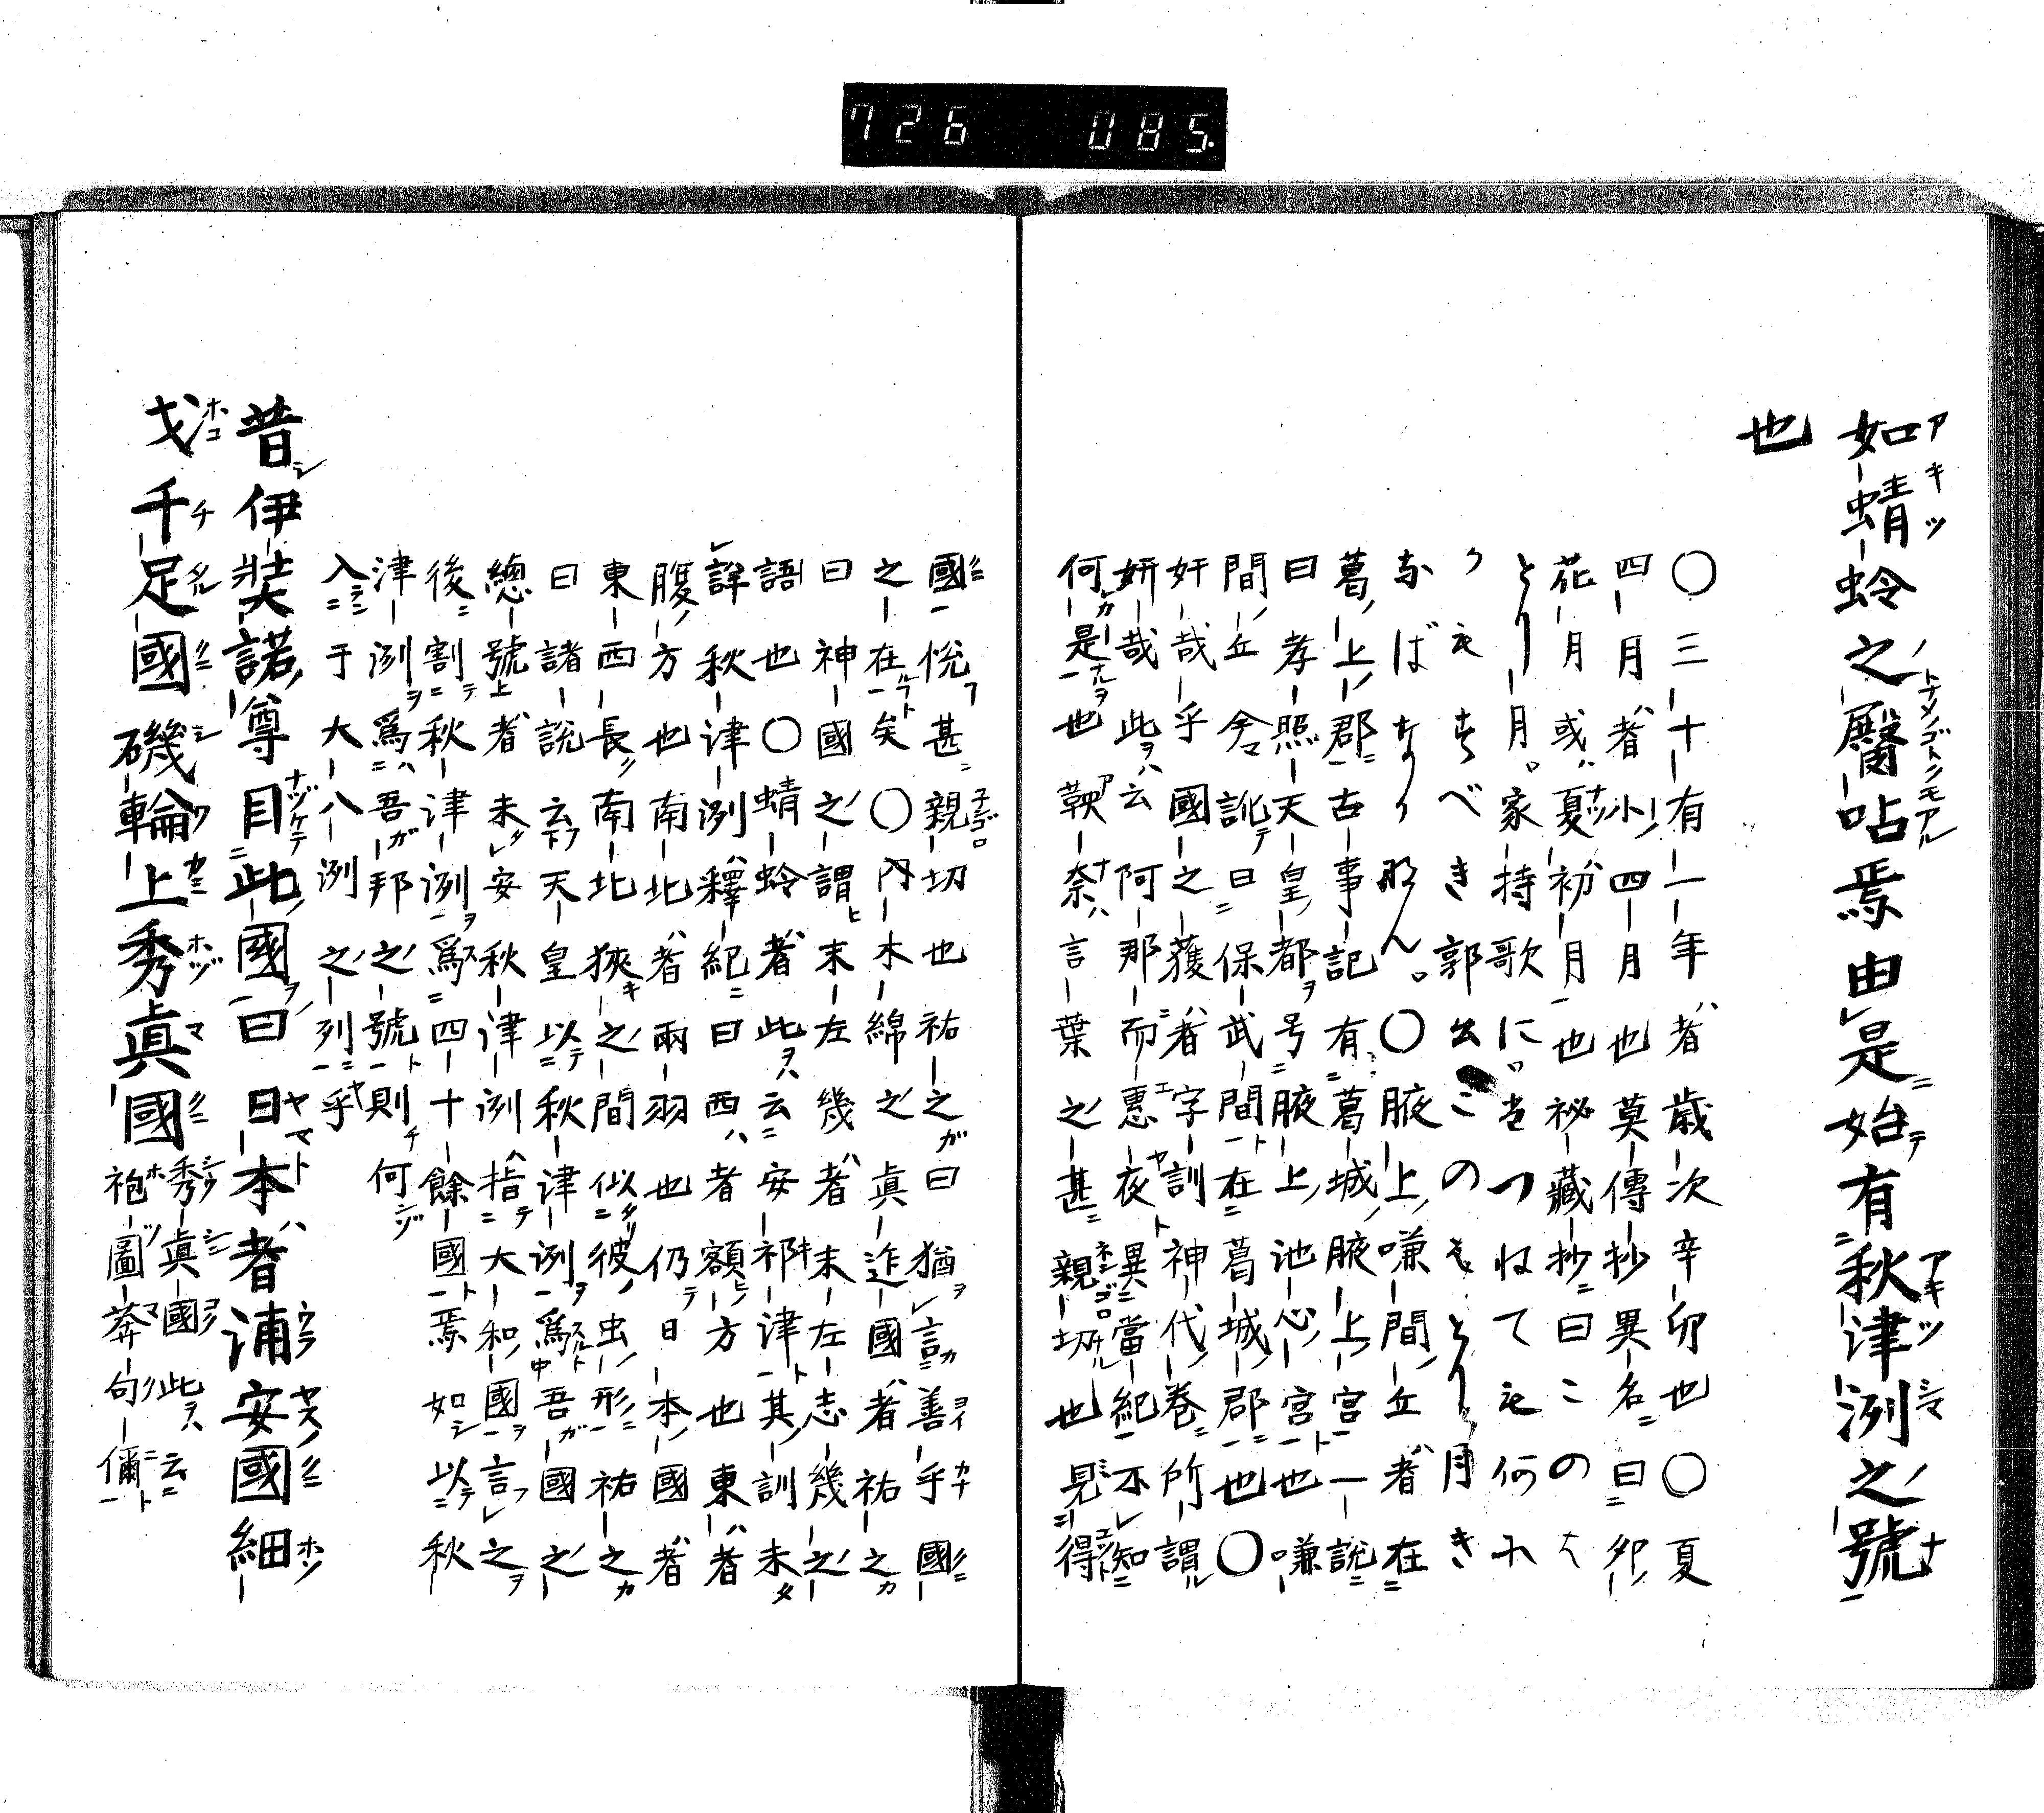 726 085.
如蜻蛉之臀呫焉由是始有秋津洲之號
也
〇三十有一年者歳次辛卯也〇夏
四月者小四月也莫傳抄異名曰卯
花月或夏初月也祕藏抄曰このは
とり月。家持歌に。
きべき郭公このはとり月き
なばなりなん。〇腋上嗛間丘者在
葛上郡古事記有葛城腋上宮一說
曰孝照天皇都号腋上池心宮也嗛
間丘今訛曰保武間在葛城郡也〇
奸哉乎國之獲者字訓神代卷所謂
妍哉此云阿那而惠夜異當紀不知
何是也鞅奈言葉之甚親切也見得
國悅甚親切也祐之曰猶言善乎國
之在矣〇內木綿之眞迮國者祐之
曰神國之謂末左幾者末左志幾之
語也〇蜻蛉者此云安祁津其訓未
詳秋津洲釋紀曰西者額方也東者
腹方也南北者兩羽也仍日本國者
東西長南北狹之間似彼虫形祐之
曰諸說云天皇以秋津洲爲吾國之
總號者未安秋津洲指大和國言之
後割秋津洲爲四十餘國焉如以秋
津洲爲吾邦之號則何
入于大八洲之列乎
昔伊奘諾尊目此國曰日本者浦安國細
戈千足國磯輪上秀眞國秀眞國此云
袍圖莽句儞